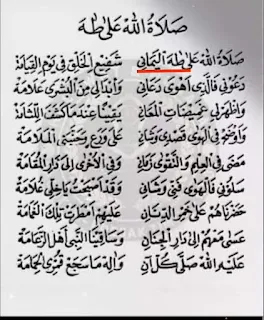 صَلَاةُ اللهِ عَلَى طٰهَ
صَلَاةُ اللهِ عَلَى طٰهَ الْيَمَانِي شَفِيْعِ الْخَلْقِ فِي يَوْمِ الْقِيَامَةْ
دَعُوْنِي فَالَّذِى أَهْوَى دَعَانِي وَأَبْدَالِي مِنَ الْبُشْرَى عَلَامَةْ
وَاظْهَرَلِي غَمِيْضَاتِ الْمَعَانِي يَقِيْنًا عِنْدَ مَا كَشَفَ اللِّثَامَةْ
وَأَوْضَحَ فِي الْهَوَى قَصْدِى وَشَانِي عَلَى رَغْمِ
مَضَى فِي الْعِلْمِ وَالتَّقْوَى وَفِي الْأُخْرَى إِلَى دَارِ الْمُقَامَةْ
سَلَوْنِي فَالْهَوَى فَنِّي وَشَانِي وَقَدْ أَصْبَحْتُ يَاخِلِّي غُلَامَةْ
حَضَرْنَاهُمْ عَلَى خَمْرِ الدِّنَانِ عَلَيْهِمْ أَمْطَرَتْ تِلْكَ الْغَمَامَةْ
عَسَى مَعَهُمْ إِلَى دَارِ الْجِنَانِ وَسَاقِيْنَا النَّبِي أَهْلُ الزَّعَامَةْ
عَلَيْهِ اللهُ صَلَّى كُلَّ آنِ وَآلِهْ مَا سَجَعْ قُمْرِى الْحَمَامَةْ